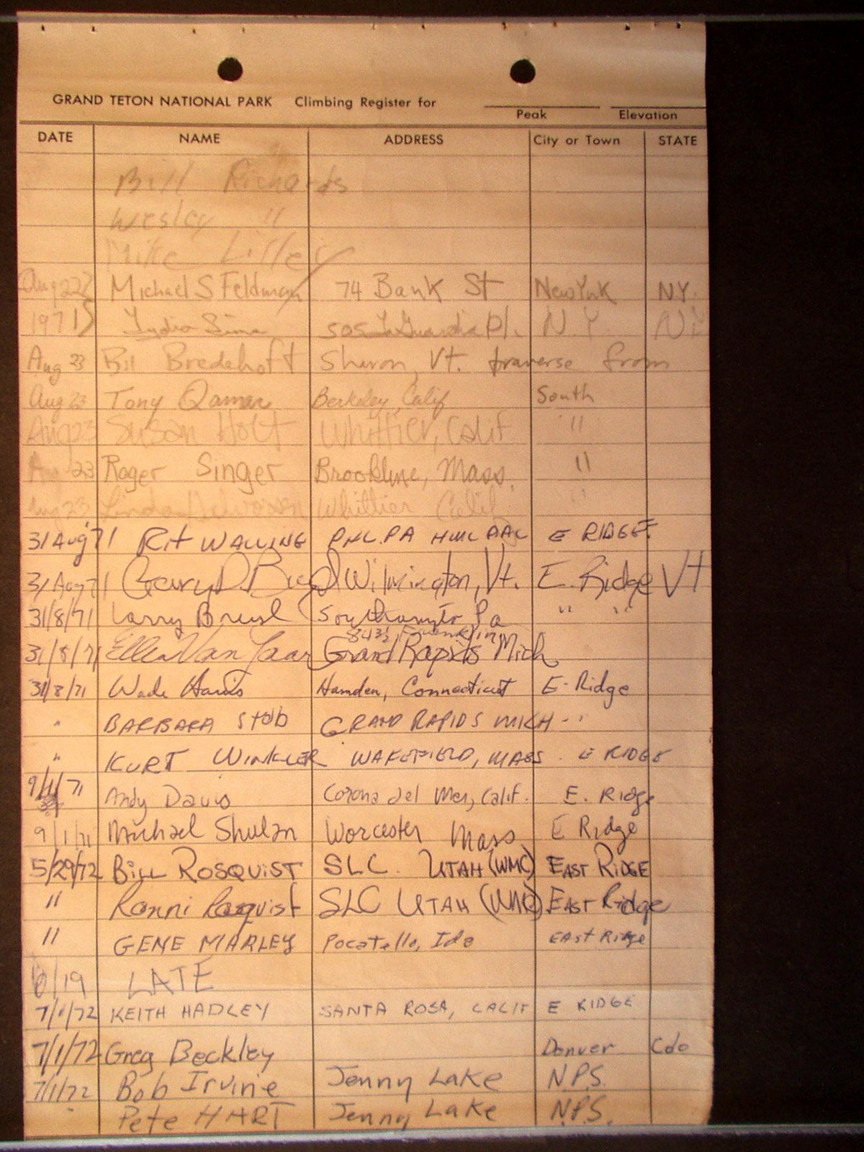 GRAND TETON NATIONAL PARK Climbing Register for
Peak Elevation
DATE NAME ADDRESS City or Town STATE
Bill Richards
Wesley "
Mike Lilley
Aug 22 Michael S Feldman 74 Bank St New York N.Y.
1971 Lydia Sima 505 LaGuardia Pl. N.Y
Aug 23 Bil Bredehoft Sharon, Vt. traverse from
Aug 23 Tony Qamar Berkeley Calif South
Aug 23 Susan Holt Whittier, Calif "
Aug 23 Roger Singer Brookline, Mass. "
Aug 23 Linda Whittier Calif "
31 Aug 71 Rit WALLING PHL. PA HMC AAC E RIDGE
31 Aug 71 Gary D. Wilmington, Vt. E. Ridge Vt
31/8/71 Larry Pa " "
843 Franklin
31/8/71 Ellen Van Laar Grand Rapids Mich
31/8/71 Wade Hamden, Connecticut E. Ridge
" BARBARA Stob GRAND RAPIDS MICH "
" KURT WINKLER WAKEFIELD, MASS. E RIDGE
9/1/71 Andy Davis Corona del Mar, Calif. E. Ridge
9/1/71 Michael Shulan Worcester Mass E Ridge
5/29/72 BILL ROSQUIST SLC. UTAH (WMC) EAST RIDGE
" Ronni Rosquist SLC UTAH (WMC) EAST Ridge
" GENE MARLEY Pocatello, Ida EAST Ridge
6/19 LATE
7/1/72 KEITH HADLEY SANTA ROSA, CALIF E RIDGE
7/1/72 Greg Beckley Denver Colo
7/1/72 Bob Irvine Jenny Lake N.P.S.
" Pete HART Jenny Lake N.P.S.